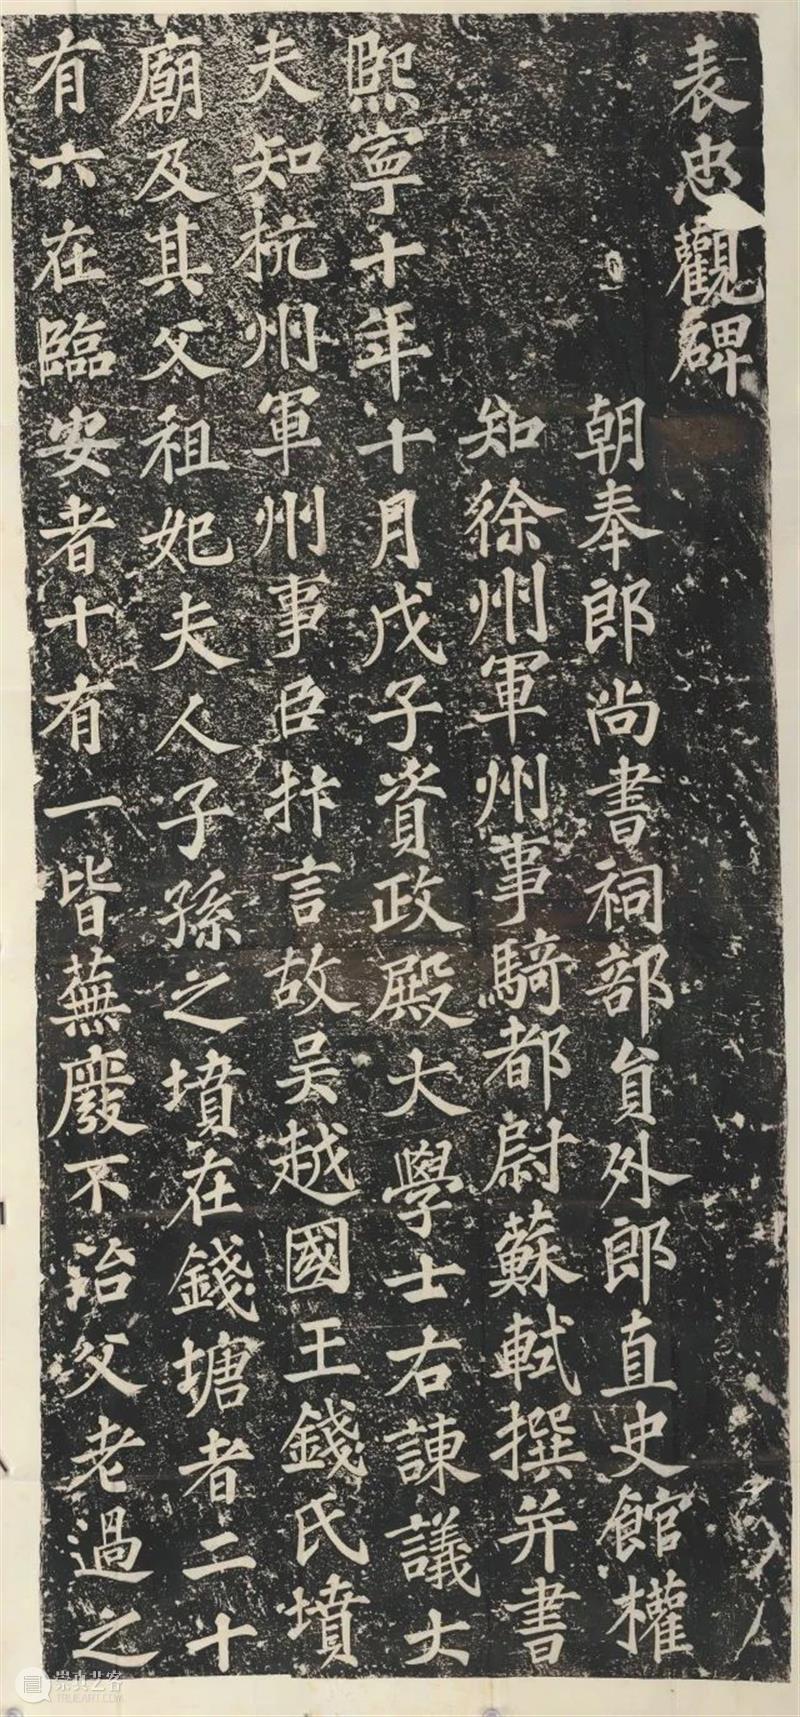 表忠觀碑
朝奉郎尚書祠部員外郎直史館權
知徐州軍州事騎都尉蘇軾撰并書
熙寧十年十月戊子資政殿大學士右諫議大
夫知杭州軍州事臣抃言故吳越國王錢氏墳
廟及其父祖妃夫人子孫之墳在錢塘者二十
有六在臨安者十有一皆蕪廢不治父老過之
崇真艺客
TRUEART.COM